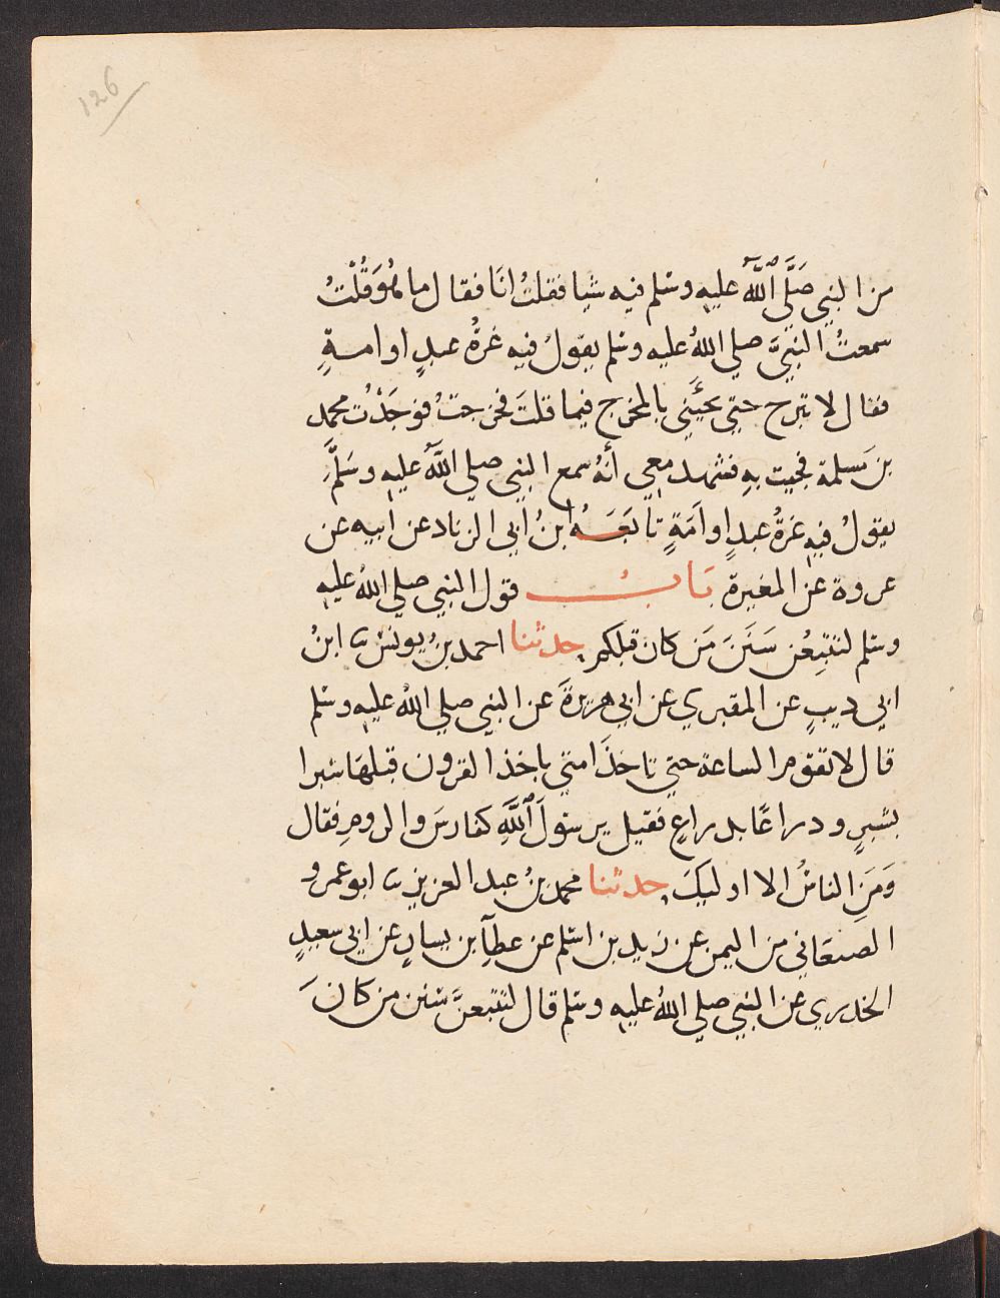 126
من النبي صَلَّي اللَّهُ عليه وسلم فيه شيا فقلتُ انَا فقال ما هُوَ قُلْتُ
سمعتُ النبيَّ صلي اللهُ عليه وسلم يقولُ فيه غرةُ عبدٍ او امةٍ
فقال لا تبرح حتي تجئَني بالمخرج فيما قلتَ فخرجتُ فوجَدْت محمد
بن مَسلمة فجيت به فشهد معي أنهُ سمع النبي صلي اللَّهُ عليه وسَلَّمَ
يقولُ فيه غرةُ عبدٍ او اَمَةٍ تابَعَهُ ابنُ ابي الزناد عن ابيه عن
عروة عن المغيرة بَابُ قول النبي صلي اللهُ عليه
وسلم لتتبِعُن سَنَنَ مَن كان قبلكم حدثنا احمد بنُ يونس ثنا ابنُ
ابي ديبٍ عن المقبري عن ابي هريرةَ عن النبي صلي اللهُ عليه وسلم
قال لا تقوم الساعة حتي تاخذَ امتي باخذ القرون قبلهَا شبرا
بشبرٍ ودراعًا بدراعٍ فقيل يرسولَ اللَّهِ كفارسَ والرومِ فقال
وَمَنِ الناسُ الا اوليكَ حدثنا محمد بنُ عبد العزيز ثنا ابو عمرو
الصنعَاني من اليمن عن زيد بن اسلم عن عطآِ بن يسارٍ عن ابي سعيدٍ
الخدري عن النبي صلي اللهُ عليه وسلم قال لتتبعنَّ سنن من كانَ